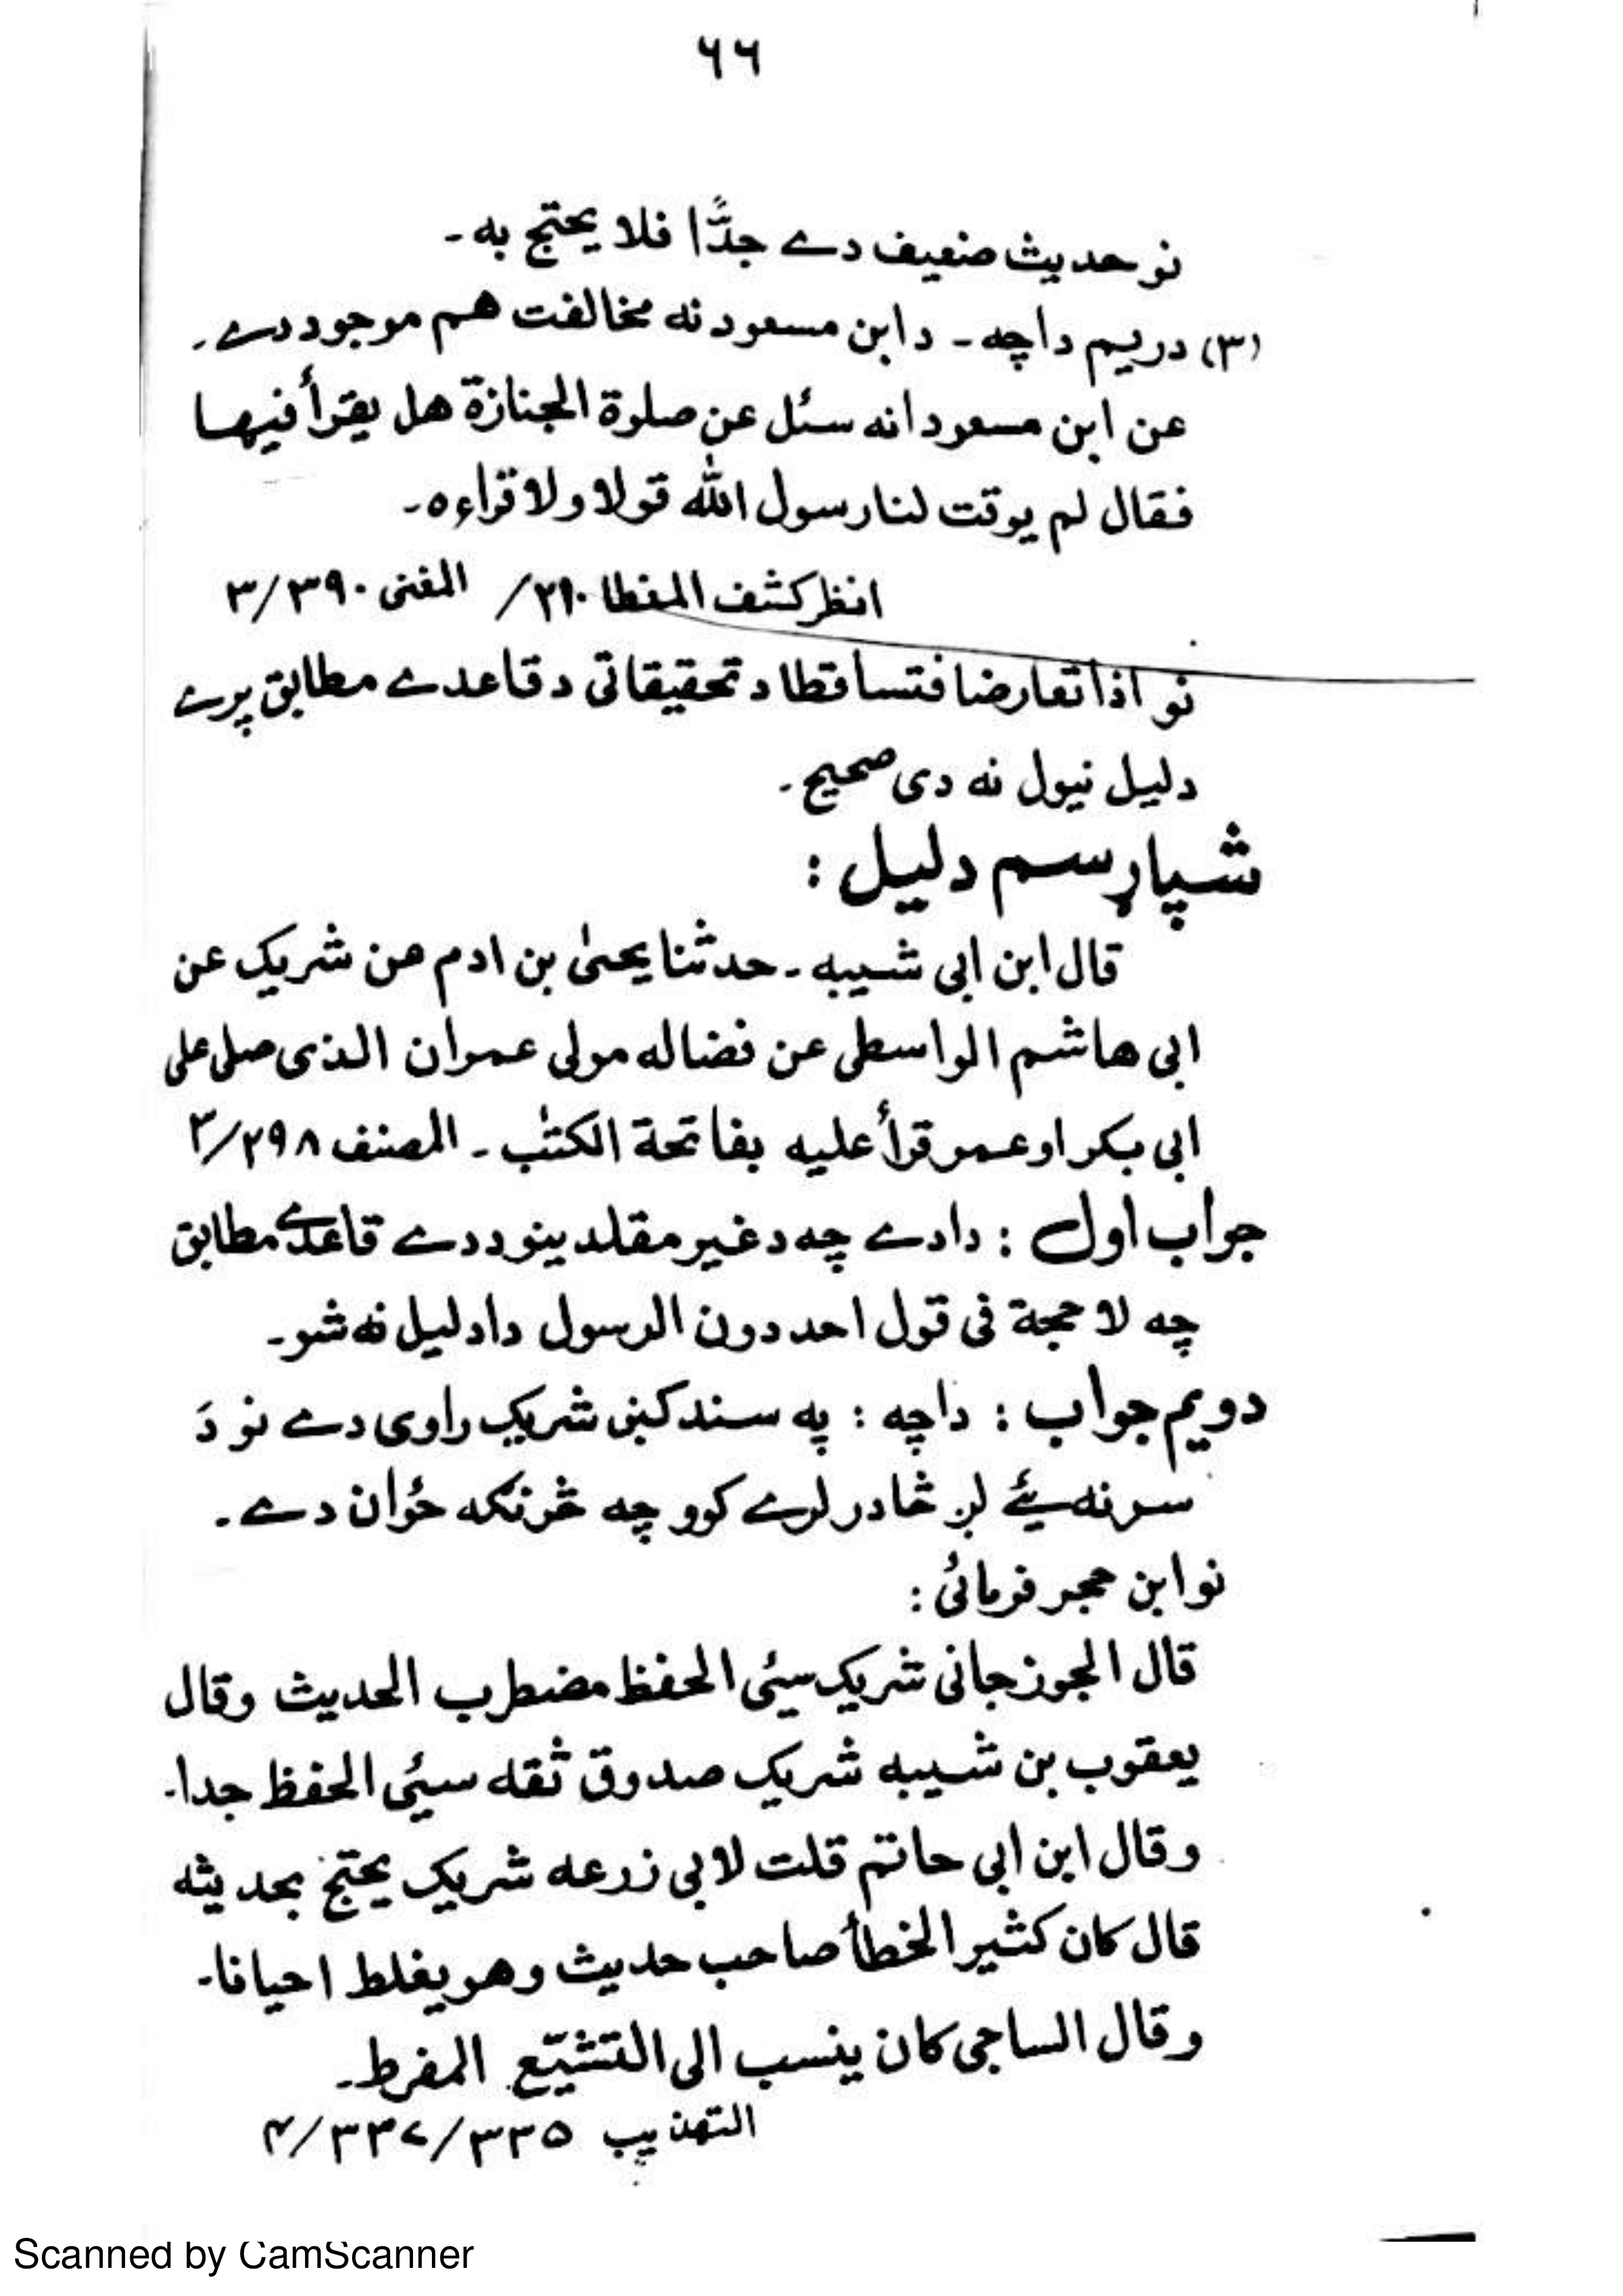 ٦٦
نو حدیث ضعیف دے جدًّا فلا یحتج به۔
(٣) دریم داچه۔ د ابن مسعود نه مخالفت هم موجود دے۔
عن ابن مسعود انه سئل عن صلوة الجنازة هل یقرأ فیها
فقال لم یوقت لنا رسول الله قولا ولا قراءه۔
انظر کشف المغطا ٢١٠/ المغنی ٣/٣٩٠
نو اذا تعارضا فتساقطا د تحقیقاتی د قاعدے مطابق پرے
دلیل نیول نه دی صحیح۔
شپاړسم دلیل :
قال ابن ابی شیبه۔ حدثنا یحیٰی بن ادم عن شریک عن
ابی هاشم الواسطی عن فضاله مولی عمران الذی صلی علی
ابی بکر او عمر قرأ علیه بفاتحة الکتٰب۔ المصنف ٣/٢٩٨
جواب اول : دا دے چه د غیر مقلدینو د دے قاعدے مطابق
چه لا حجة فی قول احد دون الرسول دا دلیل نه شو۔
دویم جواب : داچه : په سند کښی شریک راوی دے نو دَ
سر نه یئے لږ څادر لرے کوو چه څرنګه ځوان دے۔
نو ابن حجر فرمائی :
قال الجوزجانی شریک سیئی الحفظ مضطرب الحدیث وقال
یعقوب بن شیبه شریک صدوق ثقه سیئی الحفظ جدا۔
وقال ابن ابی حاتم قلت لابی زرعه شریک یحتج بحدیثه
قال کان کثیر الخطأ صاحب حدیث وهو یغلط احیانا۔
وقال الساجی کان ینسب الی التشیّع المفرط۔
التهذیب ٤/٣٣٧/٣٣٥
Scanned by CamScanner